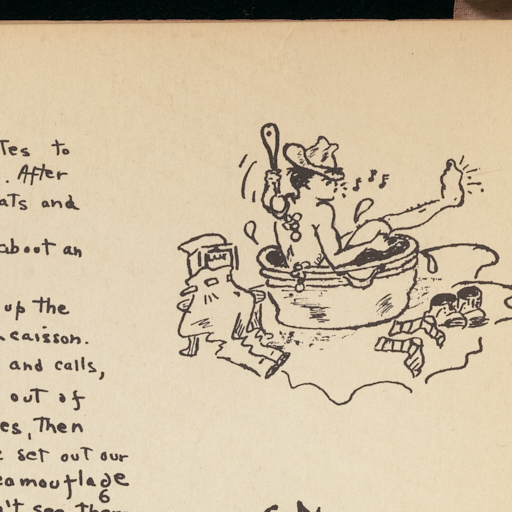 Tes to
. After
ats and
about an
up the
caisson.
and calls,
out of
es, Then
set out our
camouflage
6
't see them